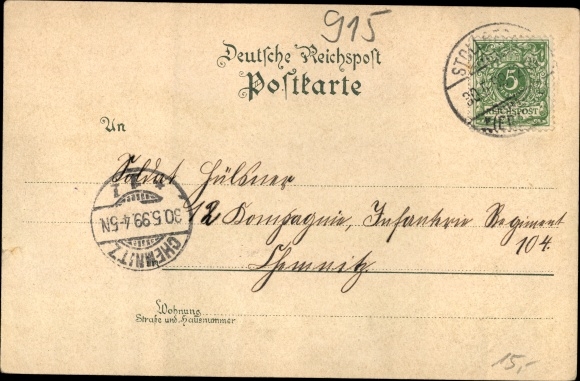 915
Deutsche Reichspost
Postkarte
5
REICHSPOST
An
Soldat Hülsner
12 Kompagnie, Infanterie Regiment
104.
Chemnitz
30.5.99.4-5N
CHEMNITZ
Wohnung
Straße und Hausnummer
15,-